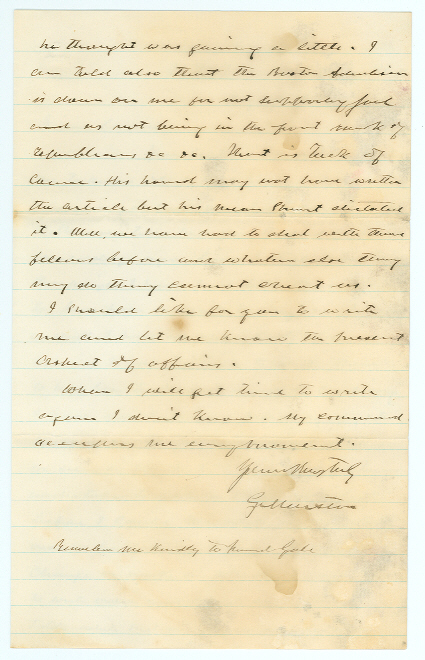 he thought was gaining a little. I
am told also that the Boston
is down on me for not supporting
and as not being in the front rank of
Republicans &c &c. That is Tuck of
course. His hand may not have written
the article but his mean spirit dictated
it. Well, we have had to deal with these
fellows before and whatever else they
may do they cannot cheat us.
I should like for you to write
me and let me know the present
aspect of affairs.
When I will get time to write
again I don't know. My command
occupies me every moment.
Yours truly
G Marston
Remember me kindly to friend Gale